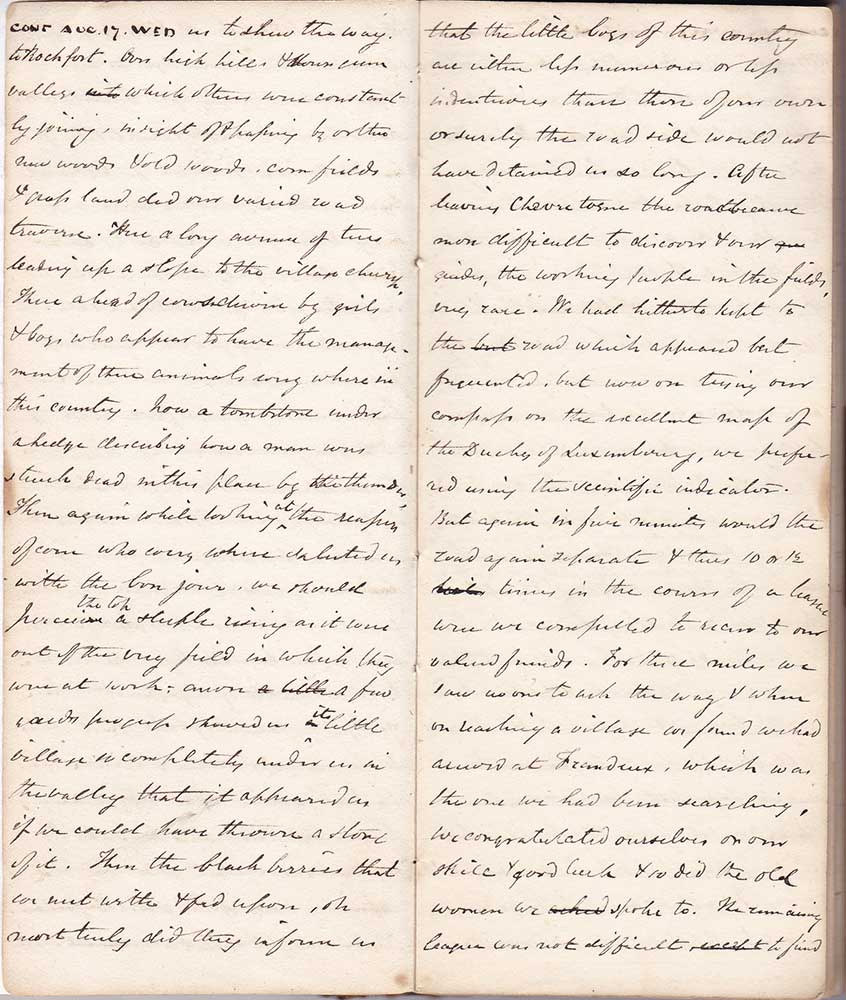 CONT AUG. 17. WED us to shew the way.
to Rochfort. Over high hills & down
valleys into which others were constant
ly joining, in sight of & passing by or thro
new woods & old woods. corn fields
& grass land did our varied road
traverse. Here a long avenue of trees
leading up a slope to the village church,
There a herd of cows driven by girls
& boys who appear to have the manage-
ment of these animals every where in
this country. Now a tombstone under
a hedge describing how a man was
struck dead in this place by the thunder,
Then again while looking at the reapers
of corn who every where saluted us
with the bon jour, we should
perceive the top a steeple rising as it were
out of the very field in which they
were at work; anon a little a few
yards progress shewed us its little
village so completely under us in
the valley that it appeared as
if we could have thrown a stone
it. Then the black berries that
we met with & fed upon, oh
most truly did they inform us
that the little boys of this country
are either less numerous or less
industrious than those of our own
or surely the road side would not
have detained us so long. After
leaving Chevretogne the road became
more difficult to discover & our
guides, the working people in the fields,
very rare. We had hitherto kept to
the but road which appeared best
frequented. but now on trying our
compass on the excellent map of
the Duchy of Luxembourg, we prefer-
red using the scientific indicator.
But again in five minutes would the
road again separate & thus 10 or 12
times in the course of a league
were we compelled to recur to our
valued friends. For three miles we
saw no one to ask the way & when
on reaching a village we found we had
arrived at Frandeux, which was
the one we had been searching,
we congratulated ourselves on our
skill & good luck & so did the old
women we asked spoke to. The remaining
league was not difficult except to find